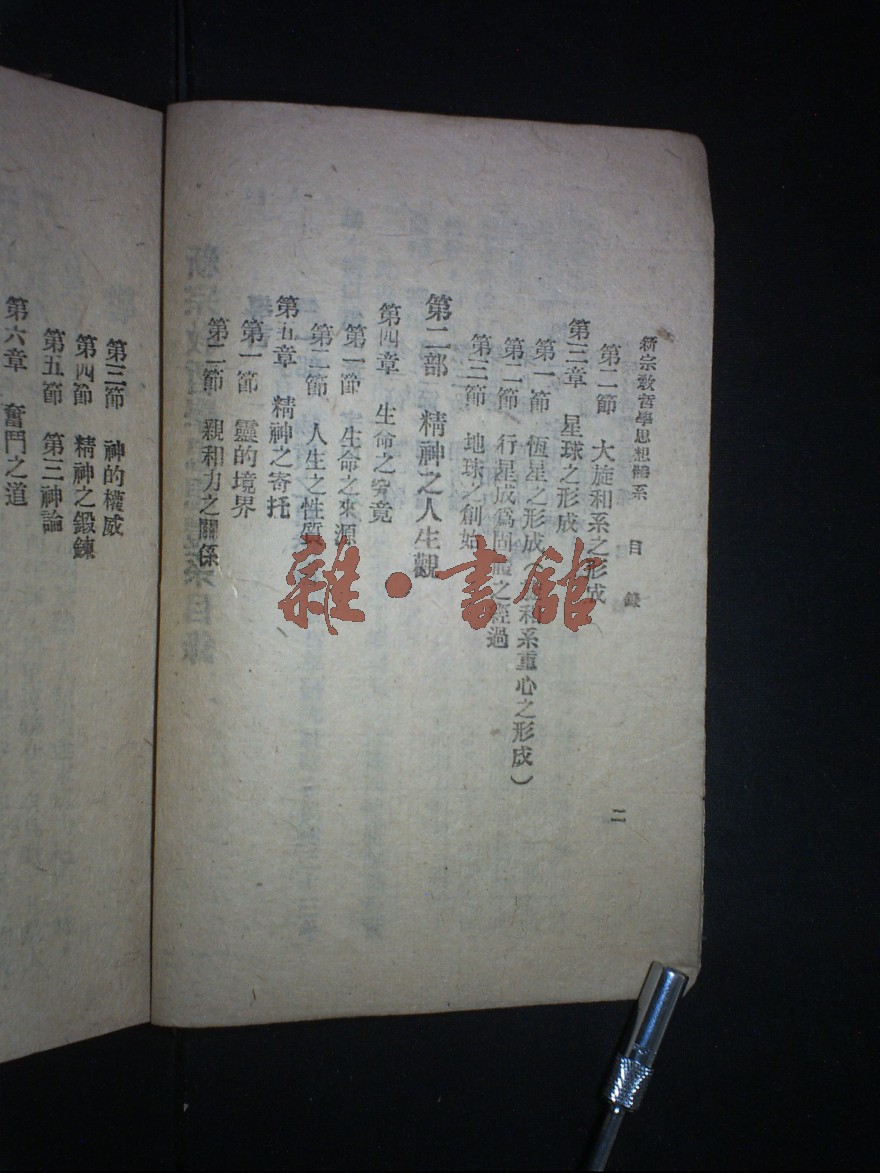 新宗敎哲學思想體系 目錄 二
第二節 大旋和系之形成
第三章 星球之形成
第一節 恆星之形成（旋和系重心之形成）
第二節 行星成爲固體之經過
第三節 地球之創始
第二部 精神之人生觀
第四章 生命之究竟
第一節 生命之來源
第二節 人生之性質
第五章 精神之寄托
第一節 靈的境界
第二節 親和力之關係
第三節 神的權威
第四節 精神之鍛鍊
第五節 第三神論
第六章 奮鬥之道
雜·書館